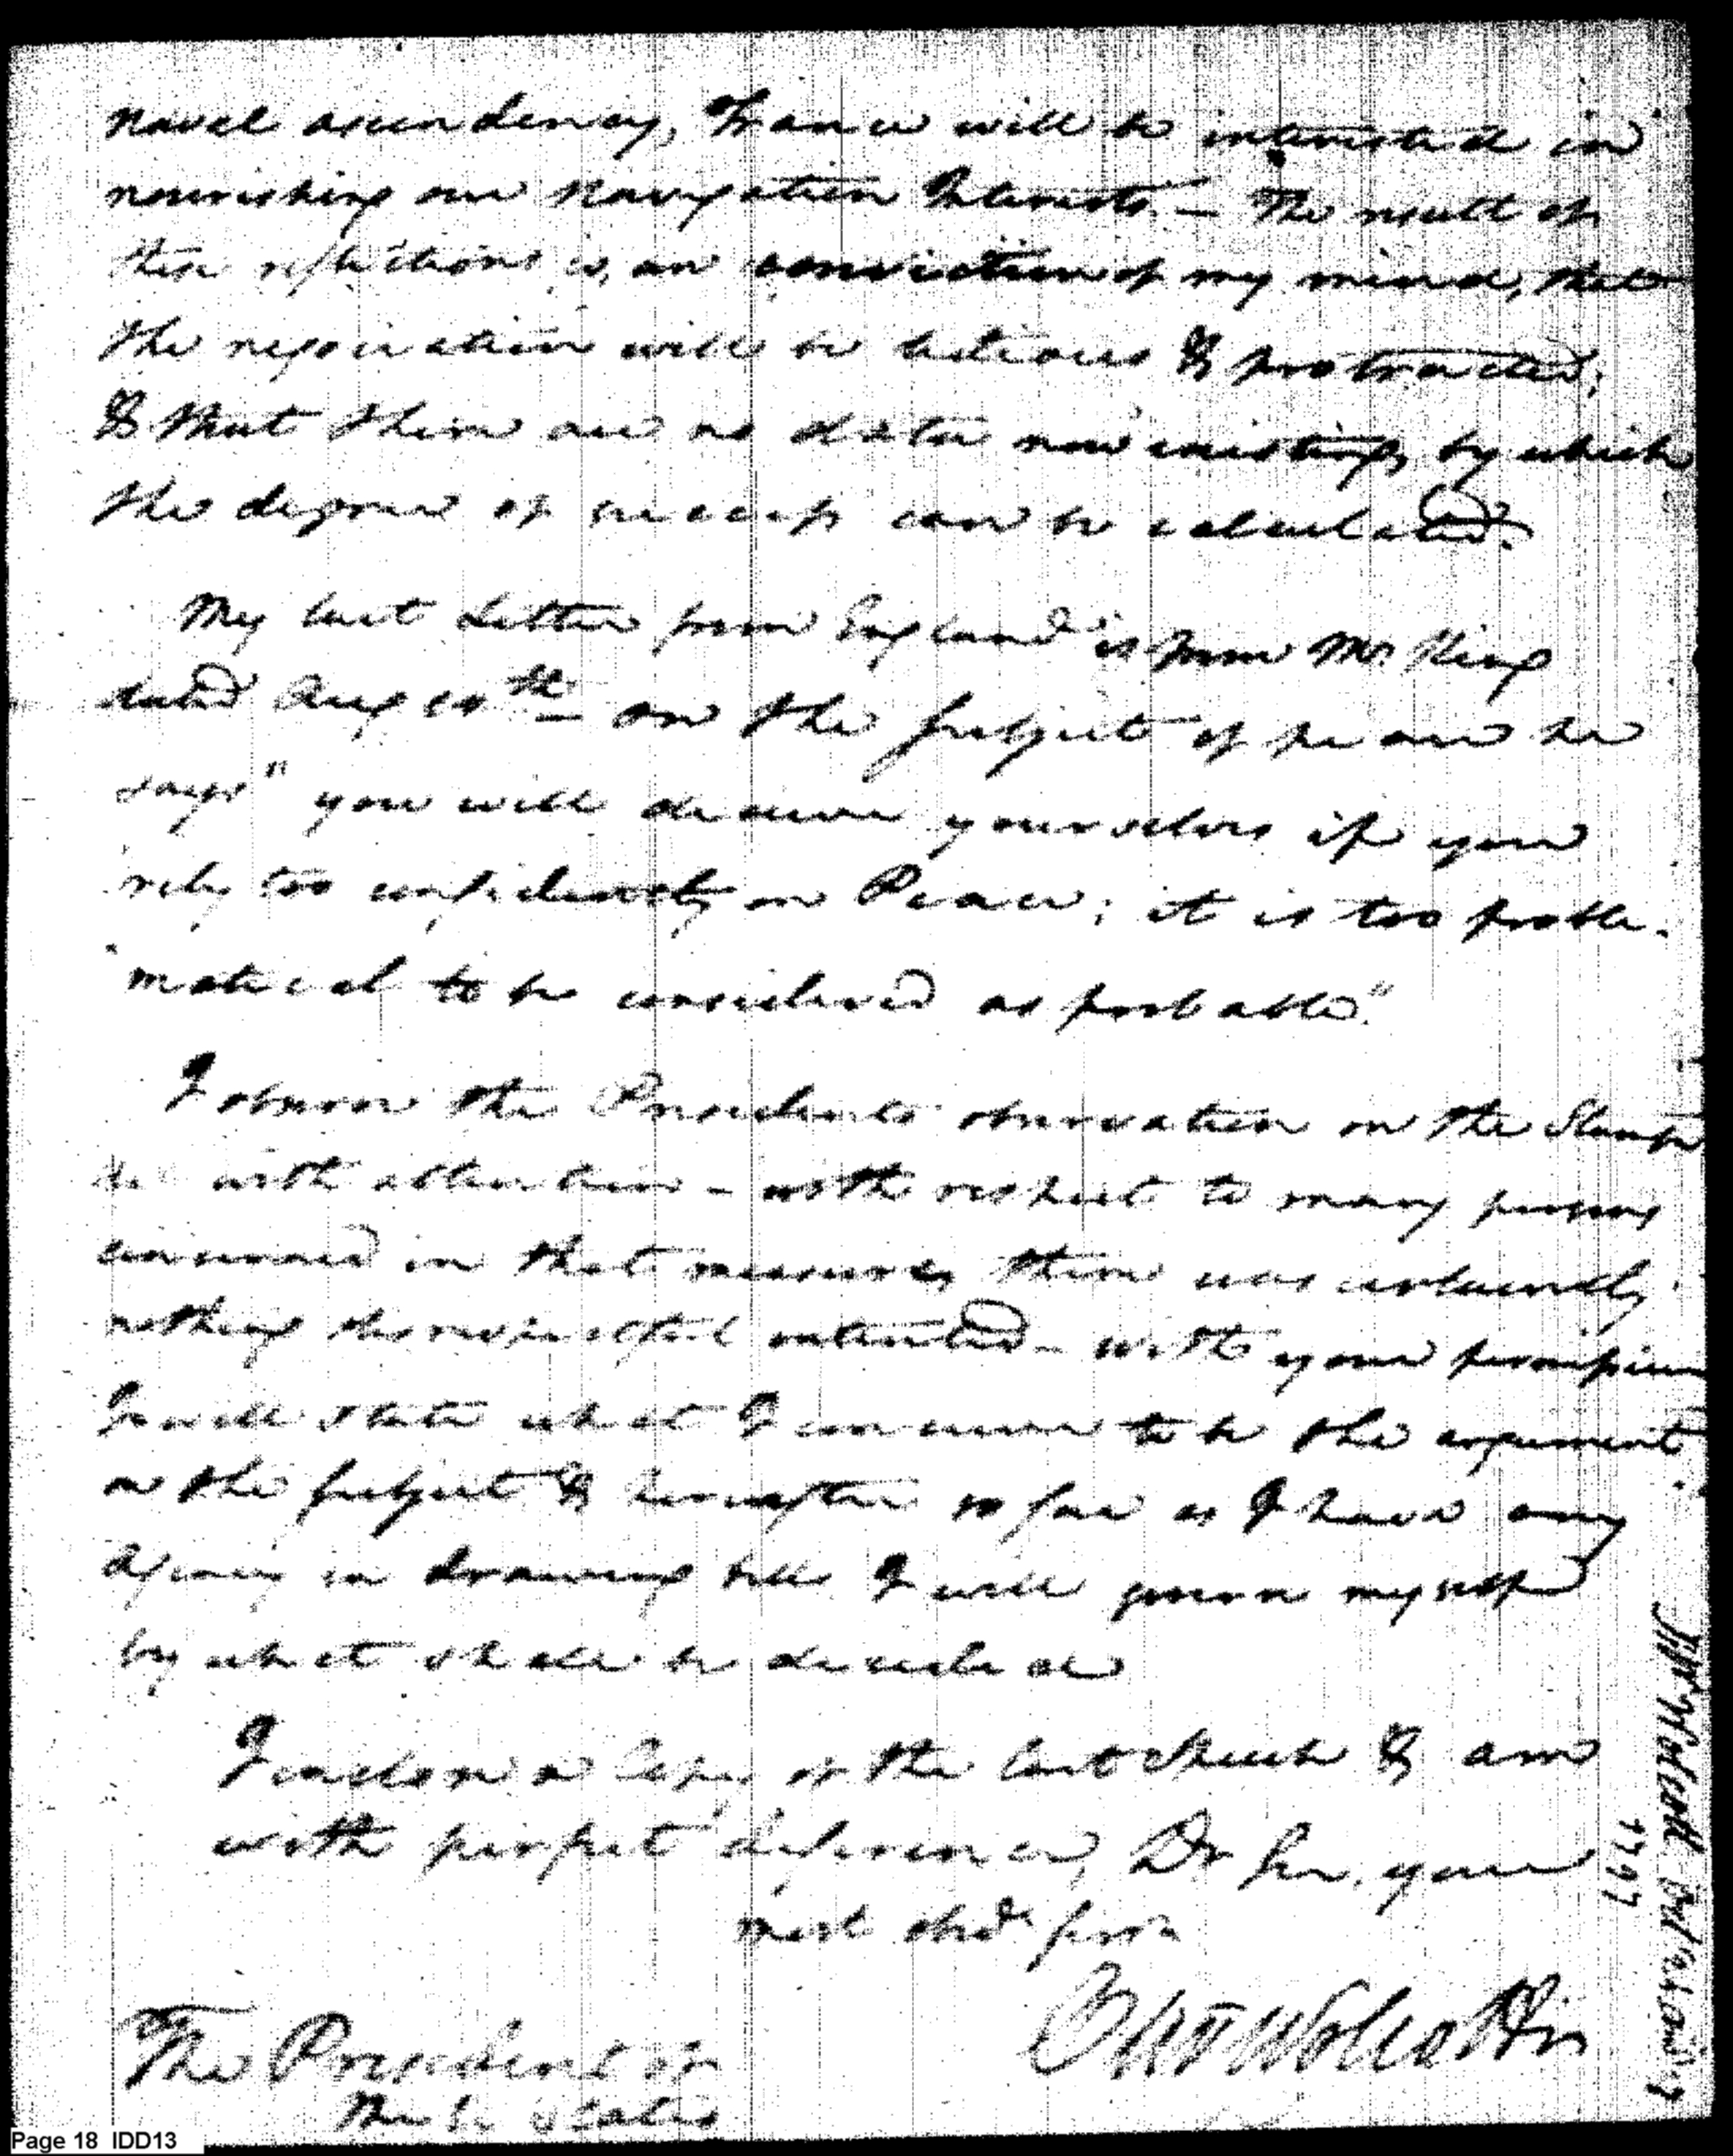 naval ascendency, France will be interested in
nourishing our Navigation Interests. — The result of
these reflections is, an conviction of my mind, that
the negociation will be tedious & protracted;
& that there are no data now existing, by which
the degree of success can be calculated.
My last Letter from England is from Mr. King
dated Aug 10th — on the subject of peace he
says "you will deceive yourselves if you
rely too confidently on Peace; it is too proble-
"matical to be considered as probable."
I observe the Presidents observation on the Stamp
with attention - with respect to many persons
concerned in that measure, there was certainly
nothing disrespectful intended - with your permission
I will state what I conceive to be the argument
on the subject & hereafter so far as I have any
Agency in drawing bills I will govern myself
by what shall be decided
I enclose a Copy of the last Speech & am
with perfect deference, Dr Sir, your
most obedt. serv.
Oliv Wolcott Jr
The President of
the U States
1797
Page 18 IDD13